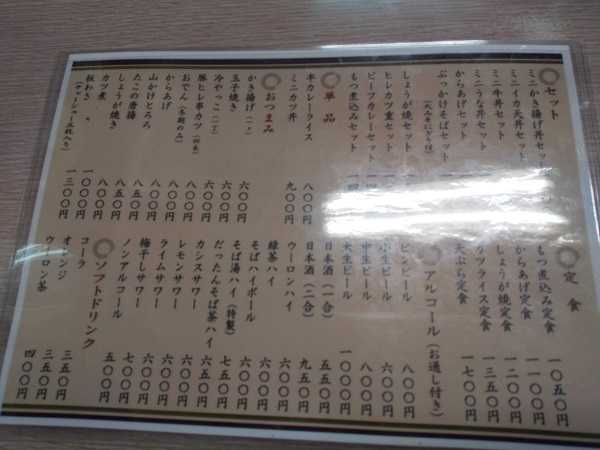 セット
ミニかき揚げ丼セット
ミニイカ天丼セット
ミニ牛丼セット
ミニうな丼セット
からあげセット
ぶっかけそばセット
しょうが焼セット
ヒレカツ重セット
ビーフカレーセット
もつ煮込みセット
単品
牛カレーライス 八〇〇円
ミニカツ丼 九〇〇円
おつまみ
かき揚げ 六〇〇円
玉子焼き 六〇〇円
冷やっこ 六〇〇円
豚ヒレ串カツ 八〇〇円
おでん(冬期のみ) 八〇〇円
からあげ 八〇〇円
山かけとろろ 八〇〇円
たこの唐揚 八五〇円
しょうが焼き 八五〇円
カツ煮 一〇〇〇円
板わさ 一三〇〇円
定食
もつ煮込み定食 一〇五〇円
からあげ定食 一一〇〇円
しょうが焼定食 一二〇〇円
カツライス定食 一三五〇円
天ぷら定食 一七〇〇円
アルコール(お通し付き)
ビンビール 八〇〇円
小生ビール 六〇〇円
中生ビール 八〇〇円
大生ビール 一〇〇〇円
日本酒(一合) 五五〇円
日本酒(二合) 九五〇円
ウーロンハイ 六〇〇円
緑茶ハイ 六〇〇円
そばハイボール 六〇〇円
そば湯ハイ(特製) 七五〇円
だったんそば茶ハイ 六五〇円
カシスサワー 六〇〇円
レモンサワー 六〇〇円
ライムサワー 六〇〇円
梅干しサワー 七〇〇円
ノンアルコール 五〇〇円
ソフトドリンク
コーラ 三五〇円
オレンジ 三五〇円
ウーロン茶 四〇〇円